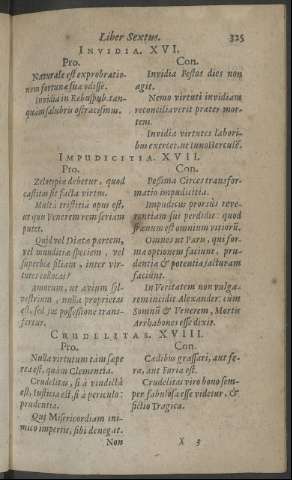 Liber Sextus. 325
INVIDIA. XVI.
Pro.
Naturale est exprobratio-
nem fortunæ suæ odisse.
Invidia in Rebuspub. tan-
quam salubris ostracismus.
Con.
Invidia Festos dies non
agit.
Nemo virtuti invidiam
reconciliaverit præter mor-
tem.
Invidia virtutes labori-
bus exercet, ut Iuno Herculē.
IMPUDICITIA. XVII.
Pro.
Zelotypiæ debetur, quod
castitas sit facta virtus.
Multa tristitia opus est,
ut quis Venerem rem seriam
putet.
Quid vel Diætæ partem,
vel munditiæ speciem, vel
superbiæ filiam, inter vir-
tutes collocas?
Amorum, ut avium syl-
vestrium, nulla proprietas
est, sed jus possessione trans-
fertur.
Con.
Pessima Circes transfor-
matio impudicitia.
Impudicus prorsus reve-
rentiam sui perdidit: quod
frænum est omnium vitiorū.
Omnes ut Paris, qui for-
mæ optionem faciunt, pru-
dentiæ & potentiæ jacturam
faciunt.
In Veritatem non vulga-
rem incidit Alexander, cùm
Somnū & Venerem, Mortis
Arrhabones esse dixit.
CRUDELITAS. XVIII.
Pro.
Nulla virtutum tam sæpe
rea est, quàm Clementia.
Crudelitas, si à vindictâ
est, Iustitia est, si à periculo:
prudentia.
Qui Misericordiam ini-
mico impertit, sibi denegat.
Non
Con.
Cædibus grassari, aut fe-
ræ, aut Furiæ est.
Crudelitas viro bono sem-
per fabulosa esse videtur, &
fictio Tragica.
X 3